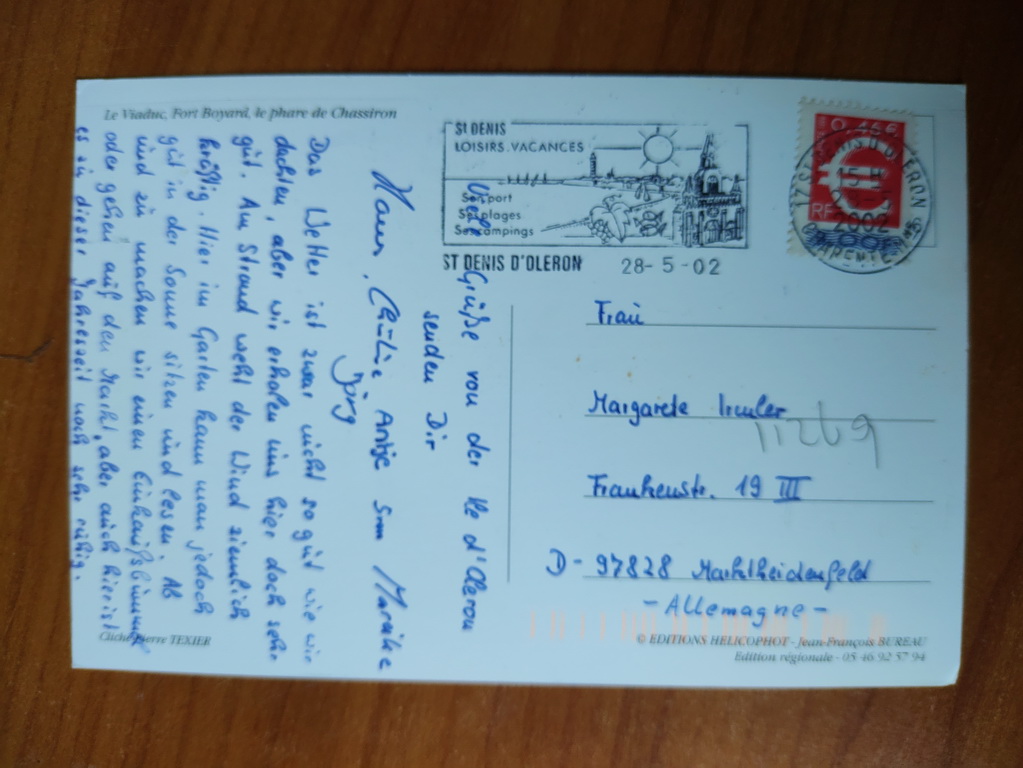 Le Viaduc, Fort Boyard, le phare de Chassiron
ST DENIS
LOISIRS.VACANCES
Ses port
Ses plages
Ses campings
ST DENIS D'OLERON 28-5-02
0,46€
RF
17 ST DENIS D OLERON
2002
CHARENTE-MME
Viele Grüße von der Ile d'Oleron
senden Dir
Antje Mareike
Jörg
Das Wetter ist zwar nicht so gut wie wir
dachten, aber wir erholen uns hier doch sehr
gut. Am Strand weht der Wind ziemlich
kräftig. Hier im Garten kann man jedoch
gut in der Sonne sitzen und lesen. Ab
und zu machen wir einen Einkaufsbummel
oder gehen auf den Markt, aber auch hier ist
es zu dieser Jahreszeit noch sehr ruhig.
Frau
Margarete Irmler
11269
Frankenstr. 19 III
D-97828 Marktheidenfeld
-Allemagne-
Cliché Pierre TEXIER
© EDITIONS HELICOPHOT - Jean-François BUREAU
Edition régionale - 05 46 92 57 94